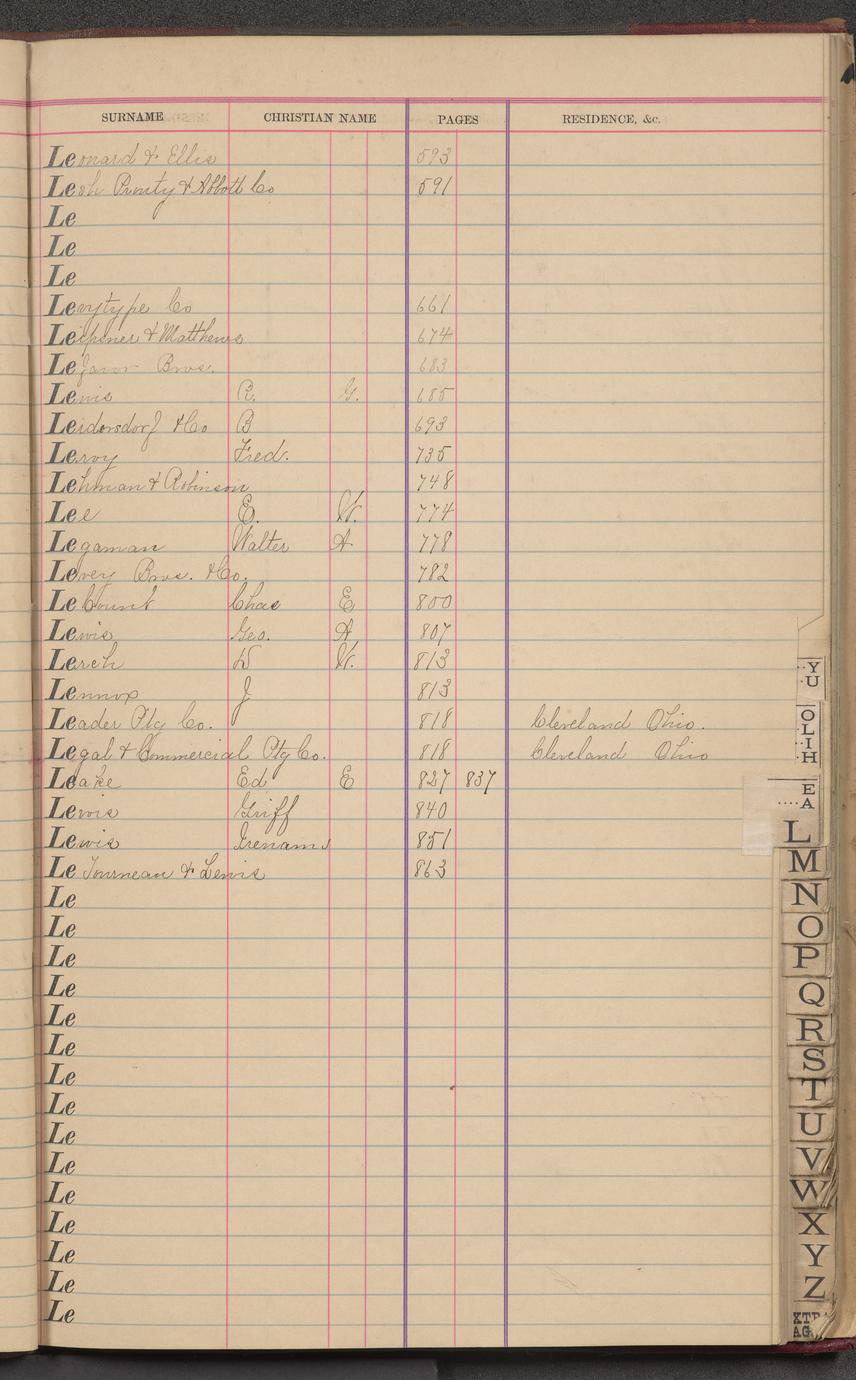 SURNAME CHRISTIAN NAME PAGES RESIDENCE, &c.
Leonard & Ellis 593
Lesh Prouty & Abbott Co 591
Le
Le
Le
Levytype Co 661
Leipsner & Matthews 674
Lefavor Bros. 683
Lewis R. G. 685
Leidersdorf & Co B 693
Leroy Fred. 735
Lehman & Robinson 748
Lee E. W. 774
Legaman Walter A 778
Levey Bros. & Co. 782
Le Count Chas E 800
Lewis Geo. A 807
Lerch W. 813
Lennox J 813
Leader Ptg Co. 818 Cleveland Ohio.
Legal & Commercial Ptg Co. 818 Cleveland Ohio
Leake Ed E 827 837
Lewis Griff 840
Lewis 851
Le Tourneau & Lewis 863
Le
Le
Le
Le
Le
Le
Le
Le
Le
Le
Le
Le
Le
Le
Le
Y
U
O
L
I
H
E
A
L
M
N
O
P
Q
R
S
T
U
V
W
X
Y
Z